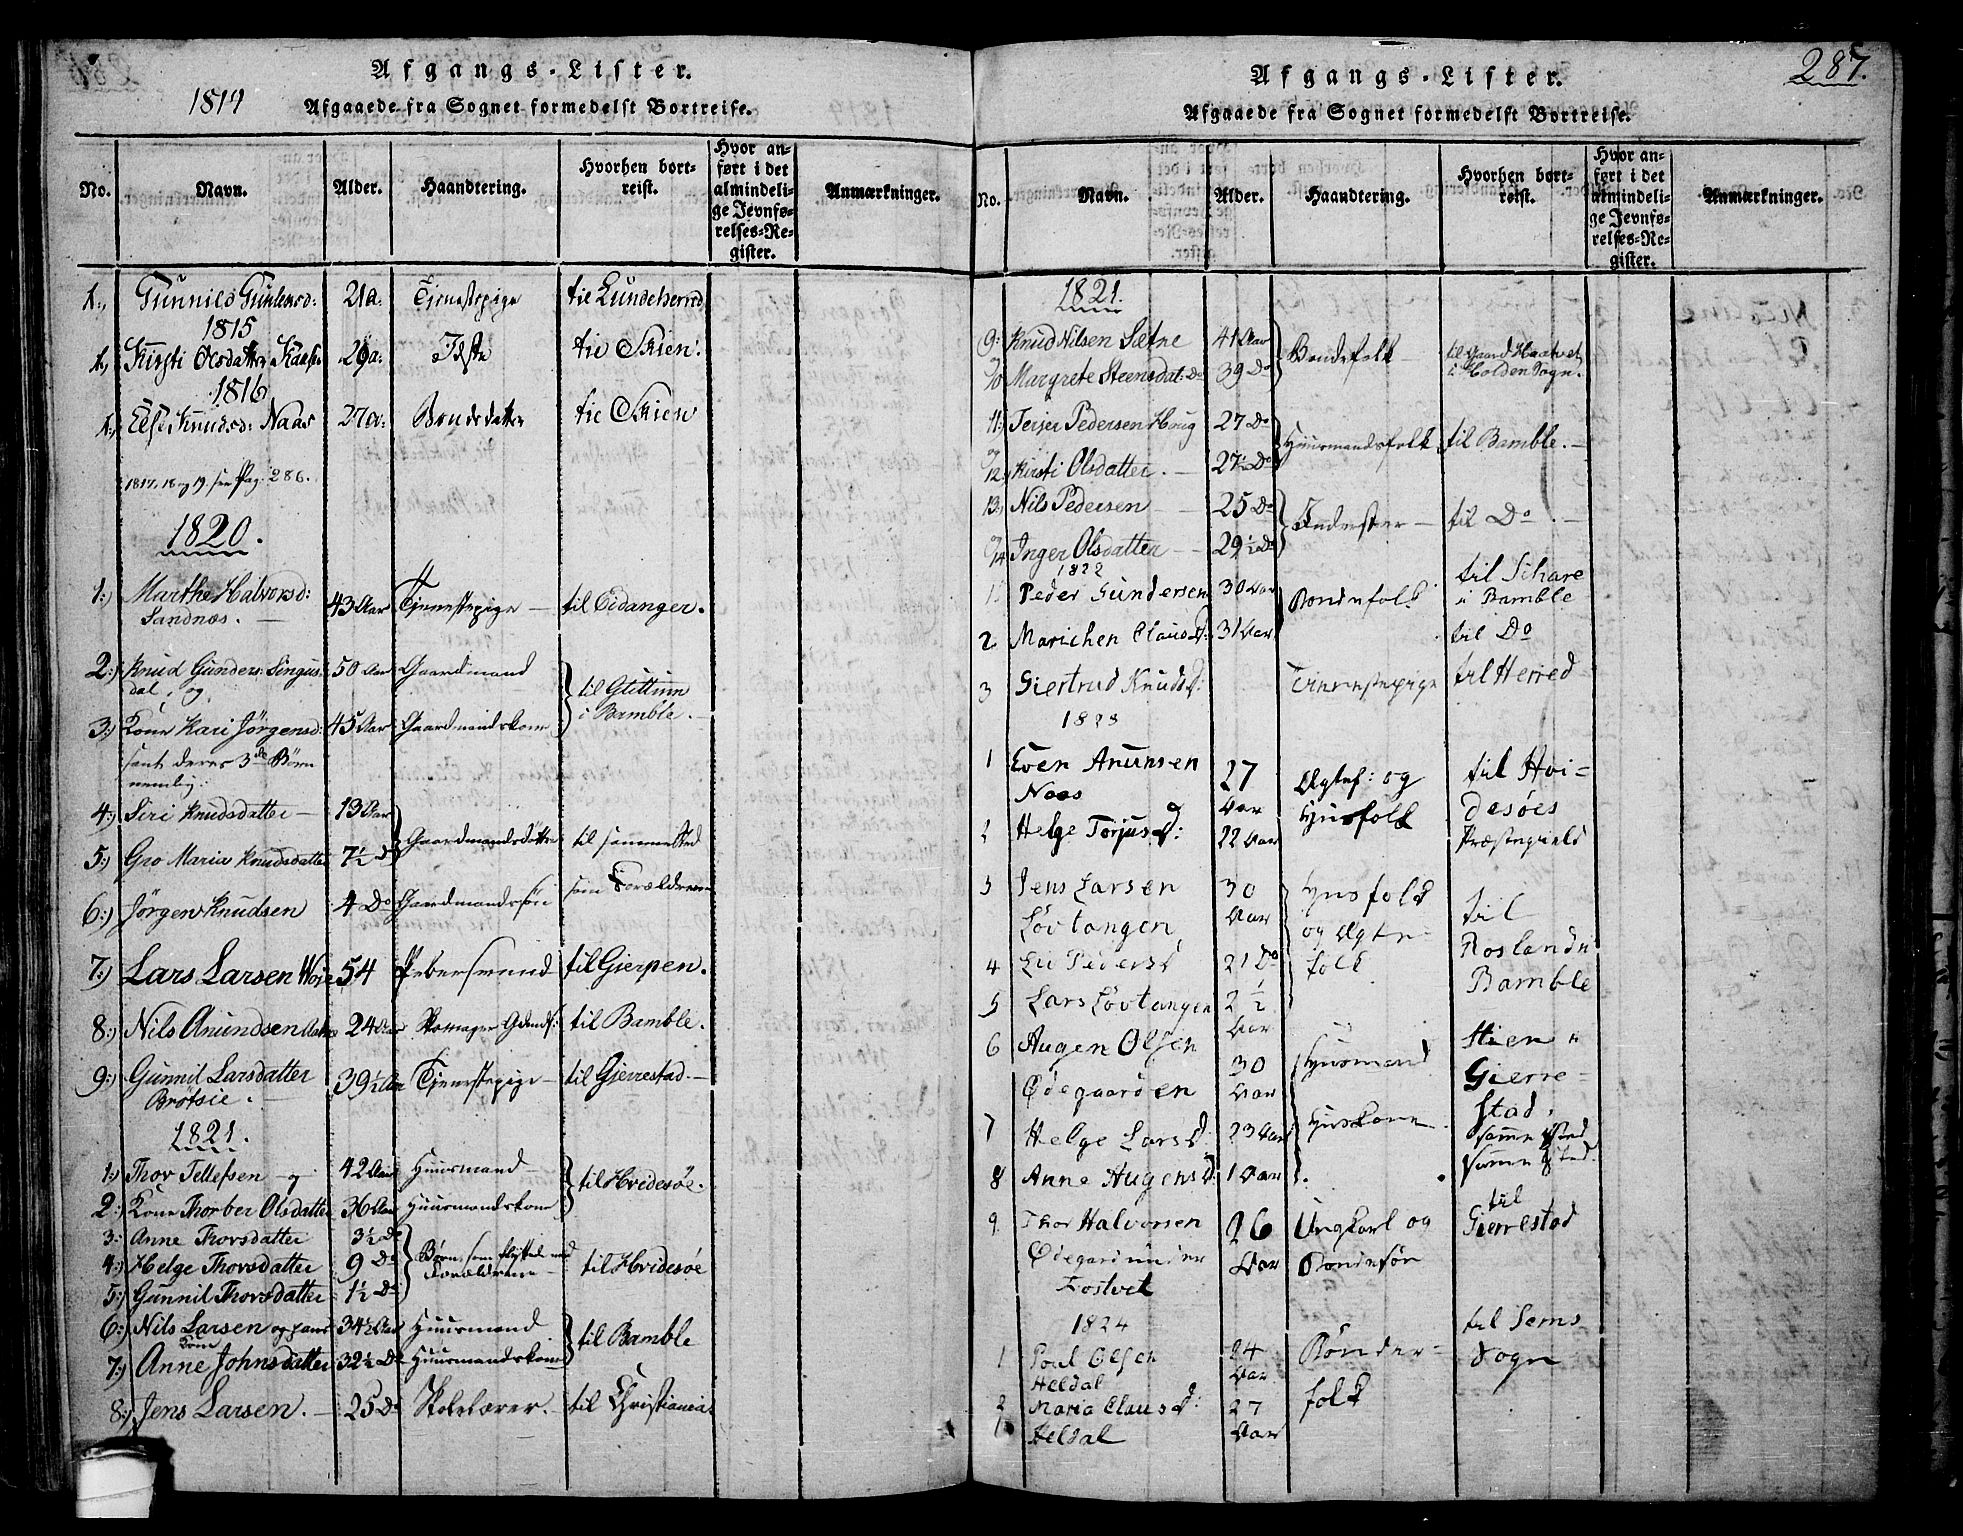 Afgangs-Lister.
1814
Afgaaede fra Sognet formedelst Bortreise.
No. Navn. Alder. Haandtering. Hvorhen bortreist. Hvor anført i det almindelige Jevnførelses-Register. Anmærkninger.
1., Gunnild 21 a: Tjenestepige til Lundeherred
1815
1, Kirsti Olsdatter 29 a: til Skien.
1816
1, Else Knudsd: Naas 27 a: Bondedatter til Skien
1817, 18 og 19. see Pag: 286.
1820.
1:) Marthe Halvorsd: Sandnæs. 43 Aar Tjenestepige til Eidanger.
2:) Knud Gunders: 50 Aar Gaardmand
dal, og til i Bamble.
3:) Kone Kari Jørgensd: 45 Aar Gaardmandskone
samt deres 3de Børn
nemlig:
4:) Siri Knudsdatter 13 Aar
5:) Gro Maria Knudsdatter 7½ D Gaardmandsdøttre til sammested
6:) Jørgen Knudsen 4 Do Gaardmandssøn som Forældrene
7:) Lars Larsen 54 Pebersvend til Gierpen.
8:) Nils Anundsen 24 Aar til Bamble.
9:) Gunnil Larsdatter 39½ Aar Tjenestepige til Gjerrestad.
1821.
1:) Thor Tellefsen og 42 Aar Huusmand til Hvidesøe.
2:) Kone Thorber Olsdatter 36 Aar Huusmandskone
3: Anne Thorsdatter 3½ Do
4:) Helge Thorsdatter 9 Do Børn, som flyttede med Forældrene til Hvidesøe
5:) Gunnil Thorsdatter 1½ Do
6:) Nils Larsen og hans Kone 34½ Aar Huusmand til Bamble
7:) Anne Johnsdatter 32½ Do Huusmandskone
8:) Jens Larsen. 25 Do Skolelærer. til Christiania
287.
Afgangs-Lister.
Afgaaede fra Sognet formedelst Bortreise.
No. Navn. Alder. Haandtering. Hvorhen bortreist. Hvor anført i det almindelige Jevnførelses-Register. Anmærkninger.
1821.
9: Knud Nilsen Sætne 41 Aar Bondefolk til Gaard Haatvet i Holden Sogn.
og 10 Margrete Steensdat: Do 39 Do
11: Terjer Pedersen Haug 27 Do Huusmandsfolk til Bamble.
og 12: Kirsti Olsdatter. 27½ Do
13, Nils Pedersen 25 Do Inderster til Do.
og 14 Inger Olsdatter 29½ Do
1822
1 Peder Gundersen 30 Aar Bondefolk til i Bamble
2 Marichen Clausd: 31 Aar til Do
3 Giertrud Knudsd: Tienestepige til Herred
1823
1 Even Anunsen Naas 27 Aar Ægtef: og Husfolk til Hvidesøes Præstegield
2 Helge Torjusd: 22 Aar
3 Jens Larsen Løvtangen 30 Aar Husfolk og Ægtefolk til Roslandn Bamble
4 Liv Pedersd 21 Do
5 Lars Løvtangen 2½ Aar
6 Augen Olsen Ødegaarden 30 Aar Husmand Gierrestad.
7 Helge Larsd: 23 Aar Huskone Samme Sted
8 Anne Augensd: 1 Aar Samme Sted.
9 Thor Halvorsen Ødegard under Fostvet 26 Aar Ungkarl og Bondesøn til Gierrestad
1824
1 Poul Olsen Heldal 24 Aar Bønderfolk til Sems Sogn
2 Maria Clausd: Heldal 27 Aar